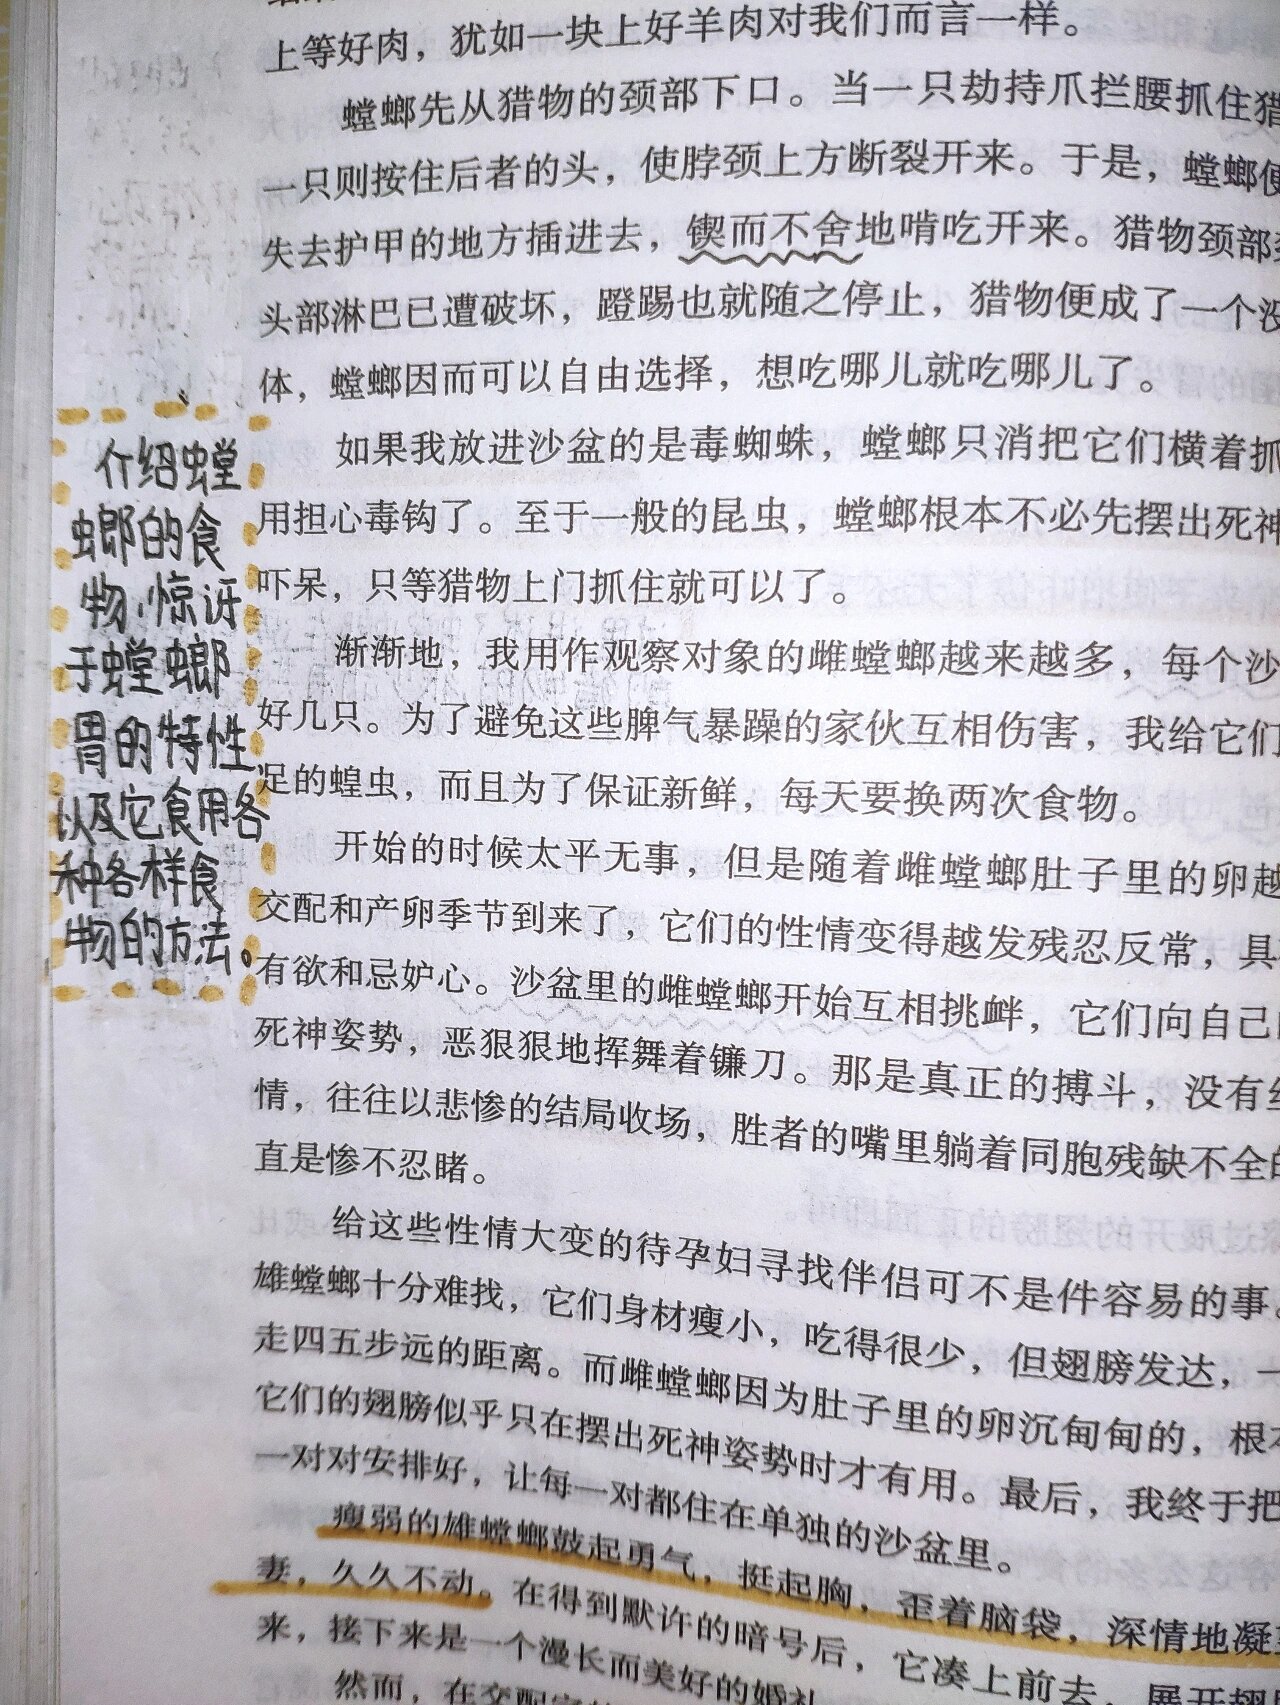 上等好肉，犹如一块上好羊肉对我们而言一样。
螳螂先从猎物的颈部下口。当一只劫持爪拦腰抓住猎
一只则按住后者的头，使脖颈上方断裂开来。于是，螳螂便
失去护甲的地方插进去，锲而不舍地啃吃开来。猎物颈部
头部淋巴已遭破坏，蹬踢也就随之停止，猎物便成了一个没
体，螳螂因而可以自由选择，想吃哪儿就吃哪儿了。
如果我放进沙盆的是毒蜘蛛，螳螂只消把它们横着抓
用担心毒钩了。至于一般的昆虫，螳螂根本不必先摆出死神
吓呆，只等猎物上门抓住就可以了。
渐渐地，我用作观察对象的雌螳螂越来越多，每个沙
好几只。为了避免这些脾气暴躁的家伙互相伤害，我给它们
足的蝗虫，而且为了保证新鲜，每天要换两次食物。
开始的时候太平无事，但是随着雌螳螂肚子里的卵越
交配和产卵季节到来了，它们的性情变得越发残忍反常，具
有欲和忌妒心。沙盆里的雌螳螂开始互相挑衅，它们向自己
死神姿势，恶狠狠地挥舞着镰刀。那是真正的搏斗，没有
情，往往以悲惨的结局收场，胜者的嘴里躺着同胞残缺不全的
直是惨不忍睹。
给这些性情大变的待孕妇寻找伴侣可不是件容易的事。
雄螳螂十分难找，它们身材瘦小，吃得很少，但翅膀发达，一
走四五步远的距离。而雌螳螂因为肚子里的卵沉甸甸的，根本
它们的翅膀似乎只在摆出死神姿势时才有用。最后，我终于把
一对对安排好，让每一对都住在单独的沙盆里。
瘦弱的雄螳螂鼓起勇气，挺起胸，歪着脑袋，深情地凝
妻，久久不动。在得到默许的暗号后，它凑上前去，展开翅
来，接下来是一个漫长而美好的婚礼
然而，在交配
介绍螳
螂的食
物，惊讶
于螳螂
胃的特性，
以及它食用各
种各样食
物的方法。